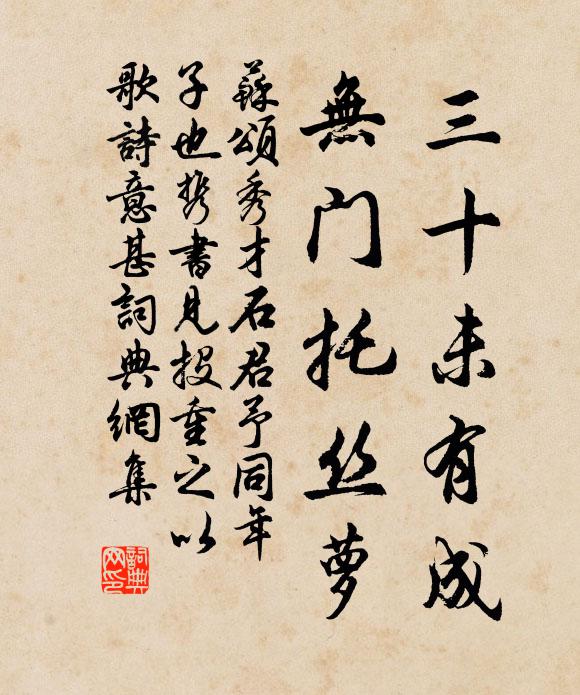 三十未有成
無门托丝萝
蘇頌秀才石君予同年
子也携書見投重之以
歌詩意甚詞典網集
詞典网印